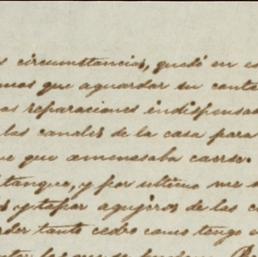 s circunstancias, quedé en es
mos que aguardar su conte
as reparaciones indispensab
las canales de la casa para
ue que amenasaba caerse.
tanque, y por ultimo me s
s y tapar agujeros de las c
der tanto cedro como tengo e